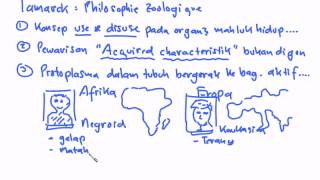 Lamarck : Philosophie Zoologique
① Konsep use & disuse pada organ2 makhluk hidup....
② Pewarisan "Acquired characteristik" bukan di gen
③ Protoplasma dalam tubuh bergerak ke bag. aktif....
Afrika
Eropa
Negroid
Kaukasian
- gelap
- Matah
- Terang